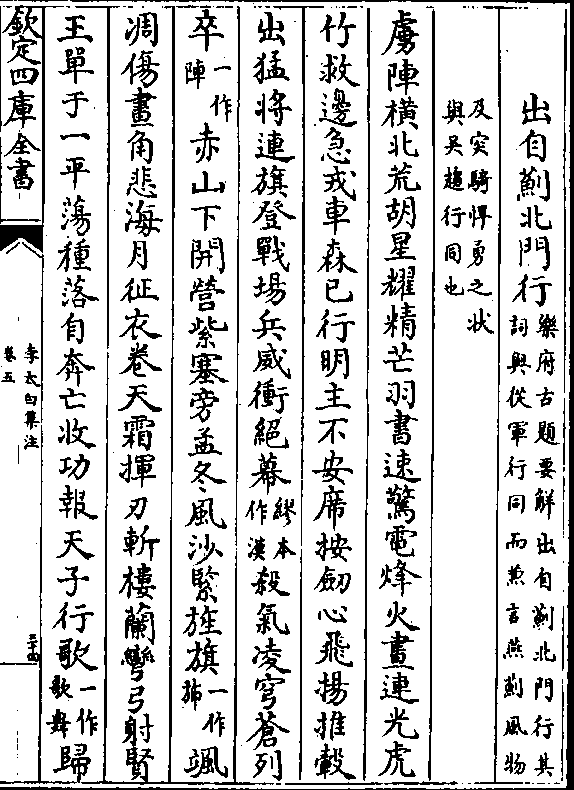 出自薊北門行樂府古題要解出自薊北門行其詞與從軍行同而兼言燕薊風物
及突騎悍勇之状與吳趨行同也
虜陣横北荒胡星耀精芒羽書速驚電烽火晝連光虎
竹救邊急戎車森已行明主不安席按劒心飛揚推轂
出猛將連旗登戰場兵威衝絕幕繆本作漠殺氣凌穹蒼列
卒一作陣赤山下開營紫塞旁孟冬風沙緊旌旗一作旆颯
凋傷畫角悲海月征衣卷天霜揮刃斬樓蘭彎弓射賢
王單于一平蕩種落自奔亡收功報天子行歌一作歌舞歸
欽定四庫全書
李太白集注
卷五
三十四